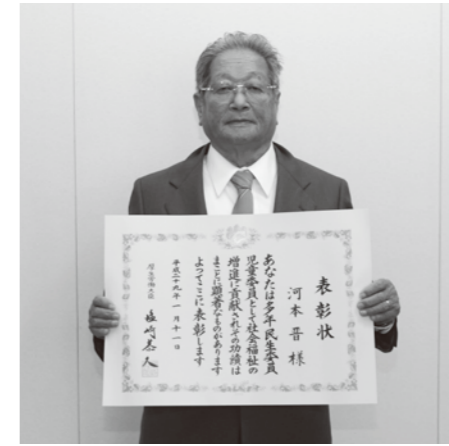 表彰状
河本晋様
あなたは多年民生委員
児童委員として社会福祉の
増進に貢献されその功績は
まことに顕著なものがあります
よってここに表彰します
平成二十九年一月十一日
厚生労働大臣
塩崎恭久